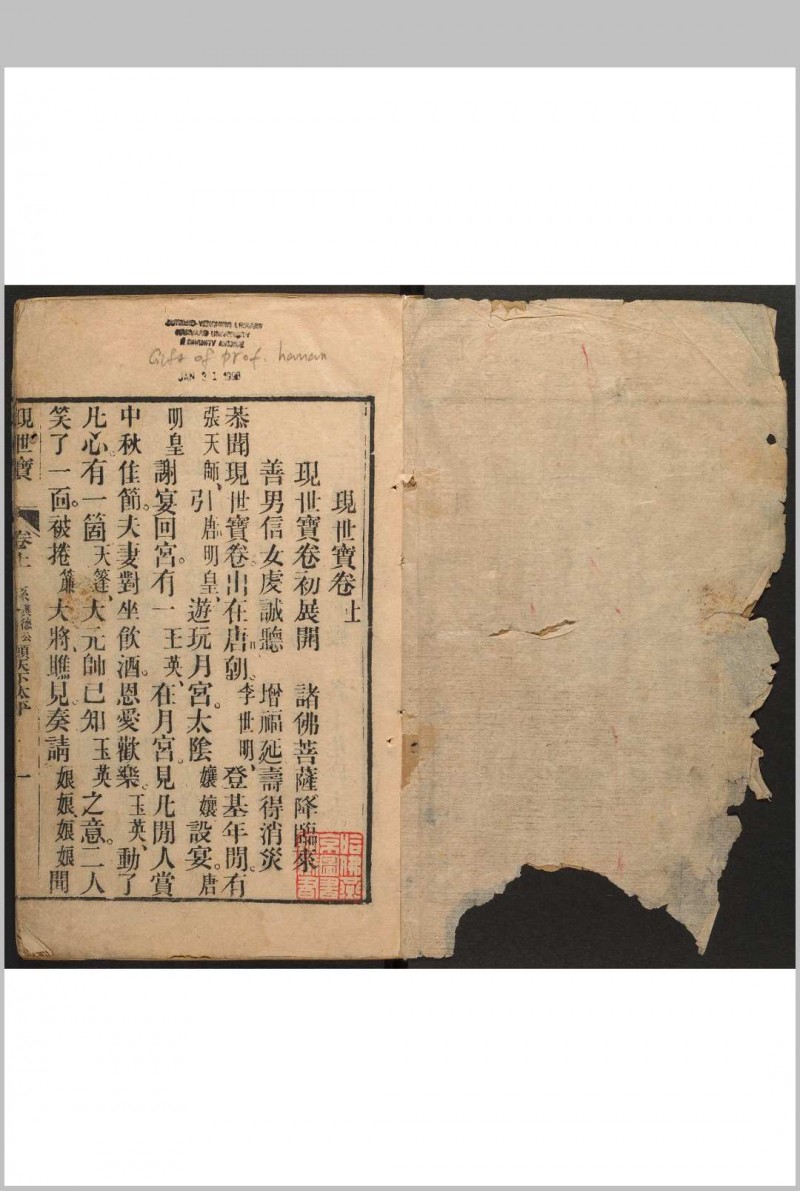 Gift of Prof. hanan
JAN 31 1998
現世寶卷上
現世寶卷初展開 諸佛菩薩降臨來
善男信女虔誠聽 增福延壽得消災
恭聞現世寶卷出在唐朝。李世明、登基年閒。有
張天師、引唐明皇、遊玩月宮。太陰孃孃設宴。唐
明皇謝宴回宮。有一王英、在月宮。見凢閒人賞
中秋佳節。夫妻對坐飲酒。恩愛歡樂。玉英、動了
凢心。有一箇天篷、大元帥已知玉英之意。二人
笑了一面。被捲簾大將、瞧見奏請娘娘、娘娘聞
現世寶 卷上 天下太平 一